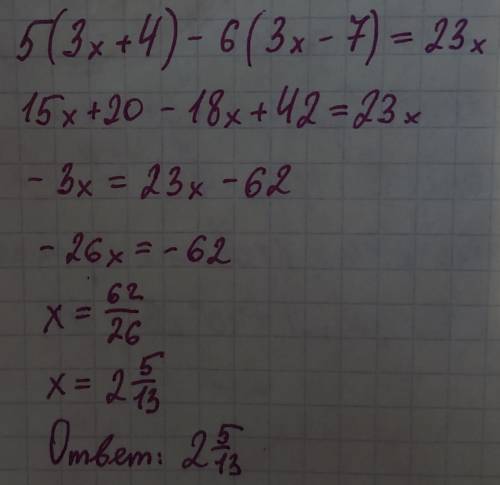 5(3x+4)-6(3x-7)=23x
15x+20-18x+42=23x
-3x=23x-62
-26x=-62
x=62/26
x=2 5/13
Ответ: 2 5/13